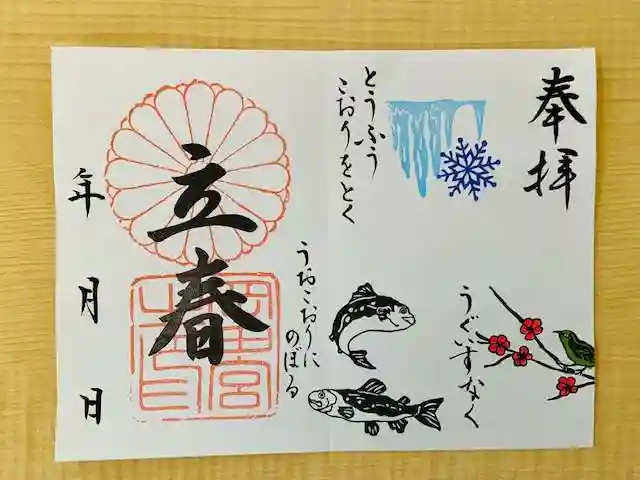 奉拝
とうふう
こおりをとく
うぐいすなく
うおこおりに
のぼる
立春
年月日